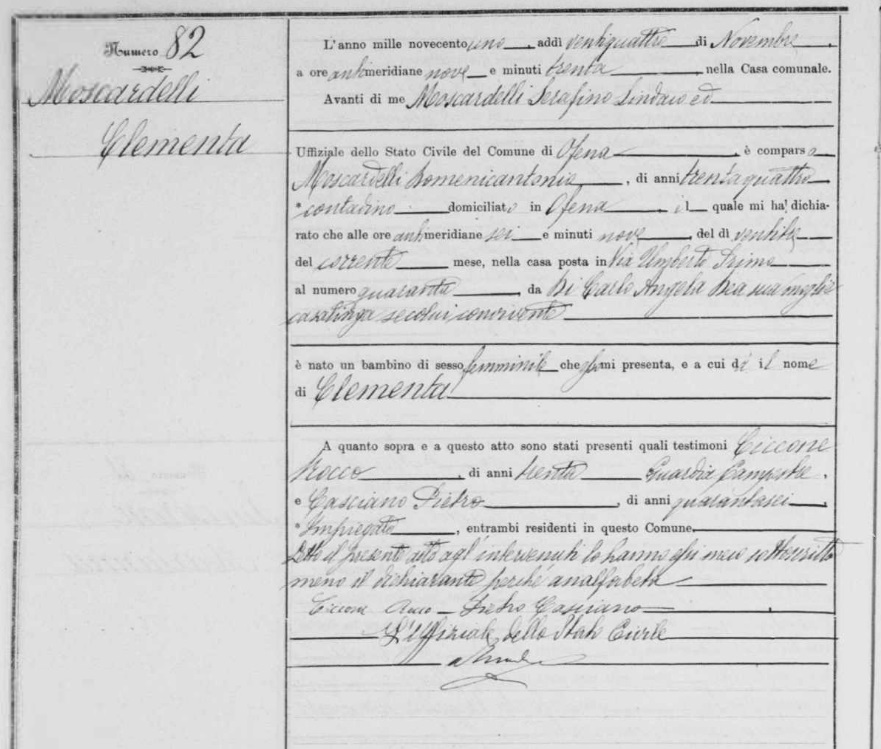 Numero 82
Moscardelli
Clementa
L'anno mille novecento uno, addì ventiquattro di Novembre,
a ore antimeridiane nove e minuti trenta, nella Casa comunale.
Avanti di me Moscardelli Serafino Sindaco ed
Uffiziale dello Stato Civile del Comune di Ofena è comparso
Moscardelli Domenicantonio, di anni trentaquattro
contadino domiciliato in Ofena, il quale mi ha dichia-
rato che alle ore antimeridiane sei e minuti nove, del dì
del corrente mese, nella casa posta in Via Umberto Primo
al numero quaranta, da Di Carlo Angela Dea sua moglie
casalinga secolui convivente
è nato un bambino di sesso femminile che mi presenta, e a cui dà il nome
di Clementa
A quanto sopra e a questo atto sono stati presenti quali testimoni Ciccone
Rocco, di anni trenta Guardia Campestre,
e Casciano Pietro, di anni quarantasei,
Impiegato, entrambi residenti in questo Comune.
Letto il presente atto agl'intervenuti lo hanno sottoscritto
meno il dichiarante perché analfabeta
Ciccone Rocco - Pietro Casciano
L'Uffiziale dello Stato Civile